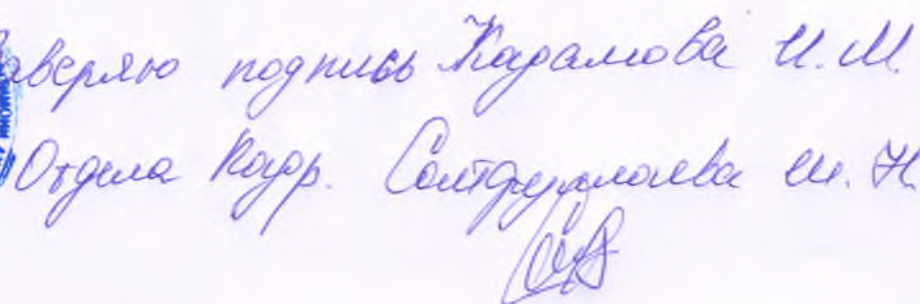 Заверяю подпись Кадамова И. М.
Отдела Кадр. Саидмуллоева Ш. Н.